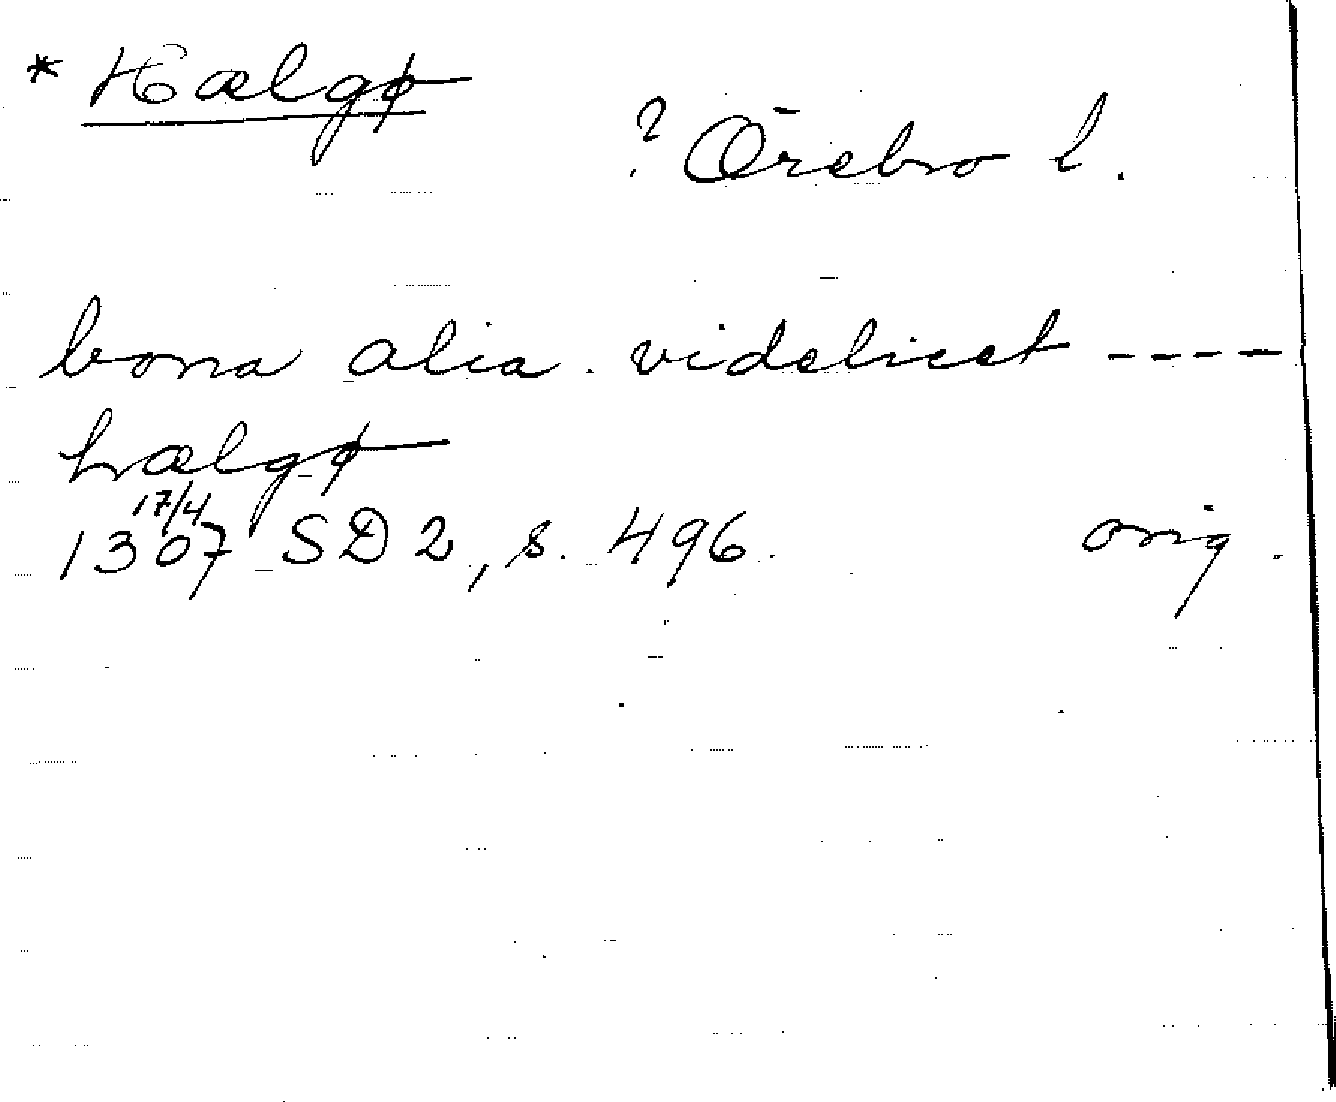 * Hælgø
? Örebro l.
bona alia. videlicet ----
hælgø
17/4
1307 SD 2, s. 496. orig.